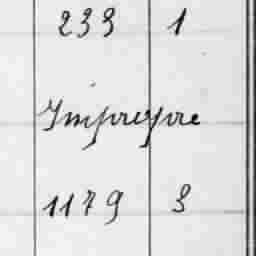 233 1
Impropre
1179 3